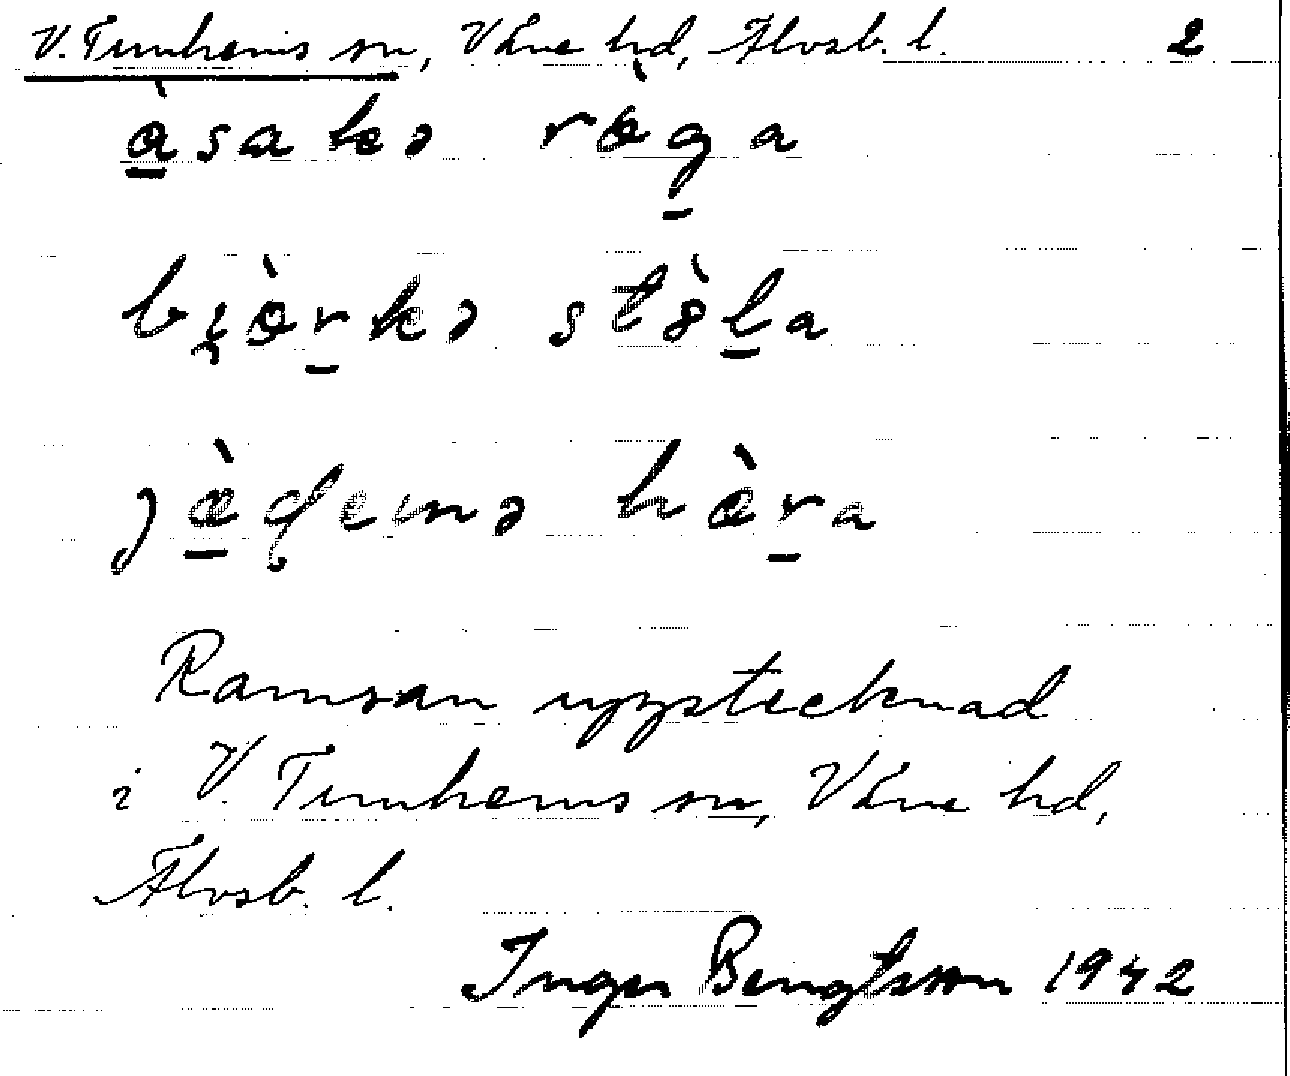 V. Tunhems sn, Väne hd, Älvsb. l. 2
àsakɘ ròga
bi̯òrkɘ stòla
jæ̀deinɘ hæ̀ra
Ramsan uppstecknad
i V. Tunhems sn, Väne hd,
Älvsb. l.
Inger Bengtsson 1942